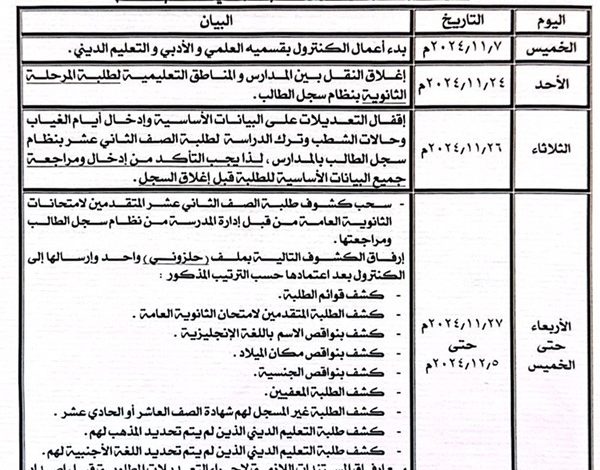 اليوم التاريخ البيان
الخميس ٢٠٢٤/١١/٧م بدء أعمال الكنترول بقسميه العلمي و الأدبي و التعليم الديني .
الأحد ٢٠٢٤/١١/٢٤م إغلاق النقل بين المدارس و المناطق التعليمية لطلبة المرحلة
الثانوية بنظام سجل الطالب .
الثلاثاء ٢٠٢٤/١١/٢٦م إقفال التعديلات على البيانات الأساسية وإدخال أيام الغياب
وحالات الشطب وترك الدراسة لطلبة الصف الثاني عشر بنظام
سجل الطالب بالمدارس ، لذا يجب التأكد من إدخال ومراجعة
جميع البيانات الأساسية للطلبة قبل إغلاق السجل .
الأربعاء
حتى
الخميس
٢٠٢٤/١١/٢٧م
حتى
٢٠٢٤/١٢/٥م
- سحب كشوف طلبة الصف الثاني عشر المتقدمين لامتحانات
الثانوية العامة من قبل إدارة المدرسة من نظام سجل الطالب
ومراجعتها .
إرفاق الكشوف التالية بملف (حلزوني) واحد وإرسالها إلى
الكنترول بعد اعتمادها حسب الترتيب المذكور :
- كشف قوائم الطلبة .
- كشف الطلبة المتقدمين لامتحان الثانوية العامة .
- كشف بنواقص الاسم باللغة الإنجليزية .
- كشف بنواقص مكان الميلاد .
- كشف بنواقص الجنسية .
- كشف الطلبة المعفيين .
- كشف الطلبة غير المسجل لهم شهادة الصف العاشر أو الحادي عشر .
- كشف طلبة التعليم الديني الذين لم يتم تحديد المذهب لهم .
- كشف طلبة التعليم الديني الذين لم يتم تحديد اللغة الأجنبية لهم .